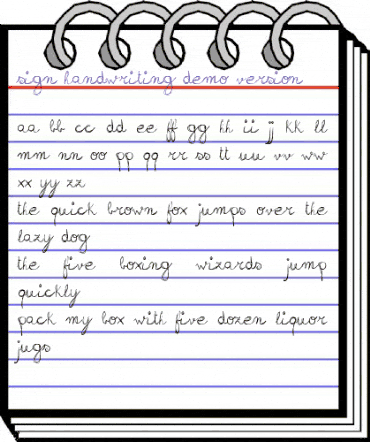 sign handwriting demo version
aa bb cc dd ee ff gg hh ii jj kk ll
mm nn oo pp qq rr ss tt uu vv ww
xx yy zz
the quick brown fox jumps over the
lazy dog
the five boxing wizards jump
quickly
pack my box with five dozen liquor
jugs